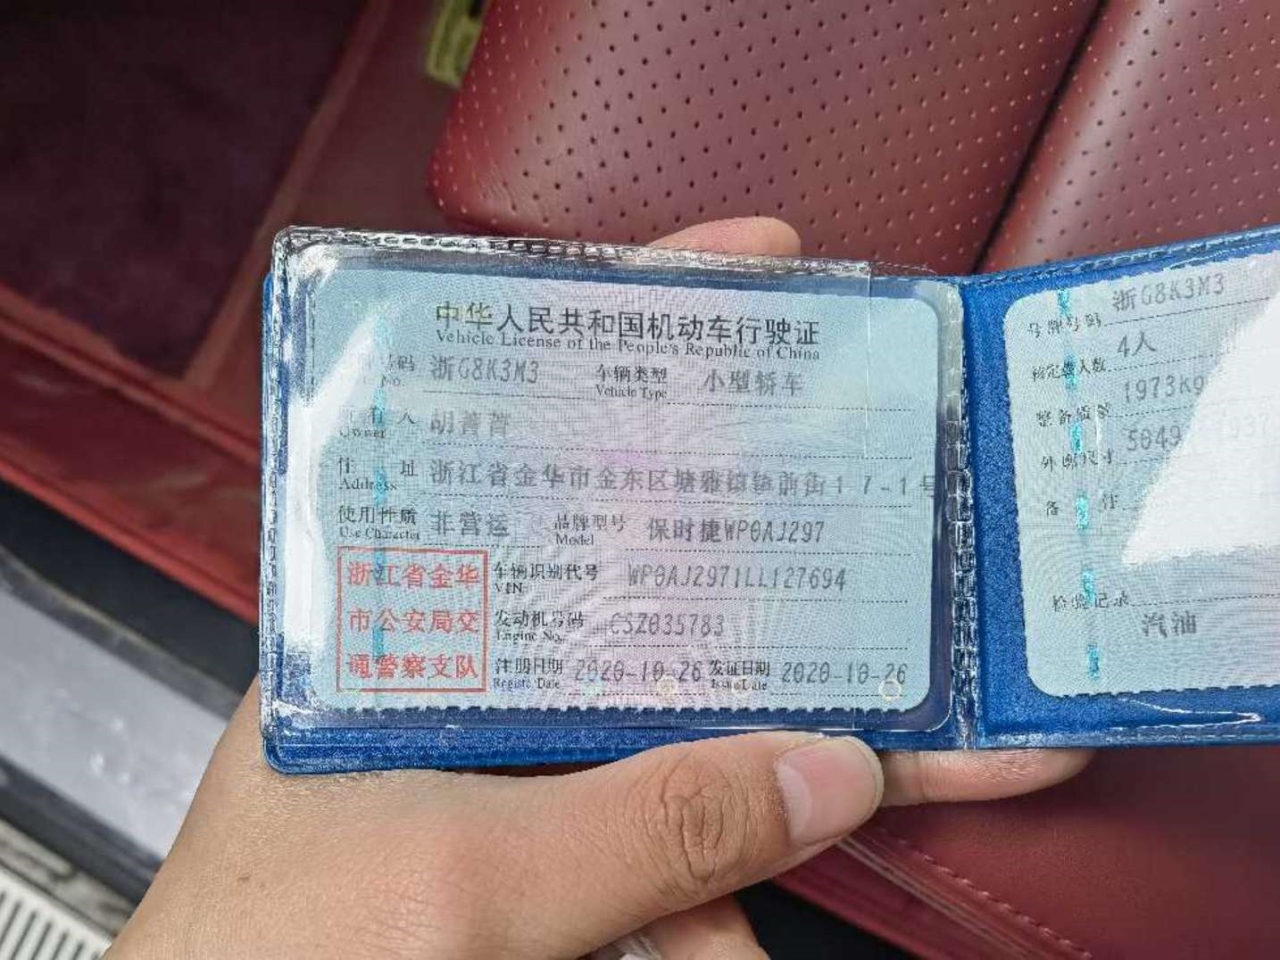 中华人民共和国机动车行驶证
Vehicle License of the People's Republic of China
号码 浙G8K3M3 车辆类型 小型轿车
No. Vehicle Type
有人 胡菁菁
Owner
住 址 浙江省金华市金东区塘雅镇镇前街17-1号
Address
使用性质 非营运 品牌型号 保时捷WP0AJ297
Use Character Model
浙江省金华
市公安局交
通警察支队
车辆识别代号 WP0AJ2971LL127694
VIN
发动机号码 CSZ035783
Engine No.
注册日期 2020-10-26 发证日期 2020-10-26
Register Date Issue Date
号牌号码 浙G8K3M3
核定载人数 4人
整备质量 1973kg
外廓尺寸 5049 1937
备 注
检验记录
汽油